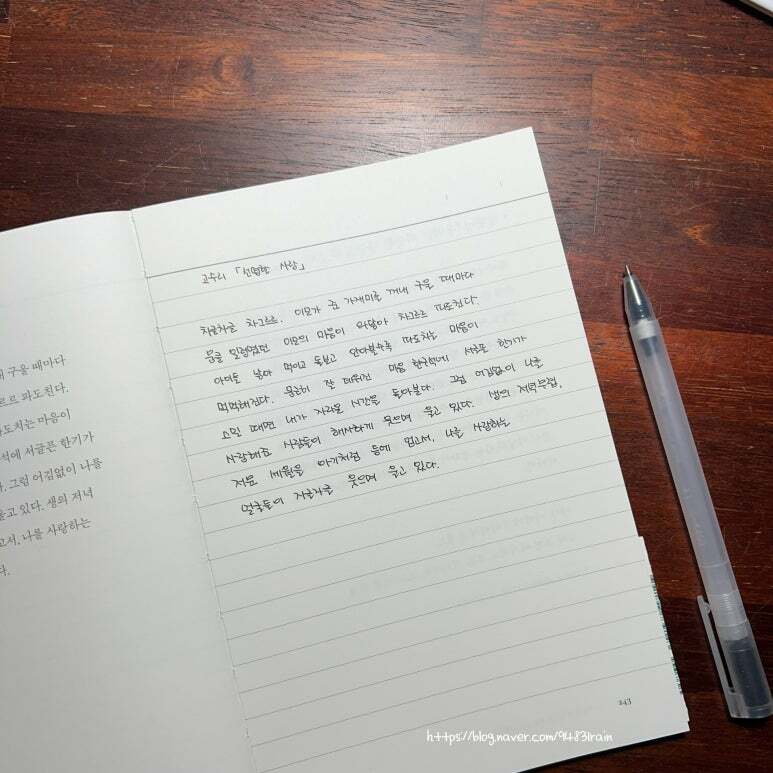 내 구울 때마다
르르 파도친다.
파도치는 마음이
석에 서글픈 한기가
다. 그럼 어김없이 나를
울고 있다. 생의 저녁
고서, 나를 사랑하는
다.
고수리 「선명한 사랑」
지글지글 차그르르. 이모가 준 가재미를 꺼내 구울 때마다
문을 일렁였던 이모의 마음이 와닿아 차그르르 파도친다.
아이를 낳아 먹이고 돌보고 안아볼수록 파도치는 마음이
먹먹해진다. 뭉근히 잘 데워진 마음 한구석에 서글픈 한기가
스밀 때면 내가 자라온 시간을 돌아본다. 그럼 어김없이 나를
사랑해준 사람들이 해사하게 웃으며 울고 있다. 생의 저녁무렵,
저문 세월을 아기처럼 등에 업고서, 나를 사랑하는
얼굴들이 지글지글 웃으며 울고 있다.
243
https://blog.naver.com/9483lrain